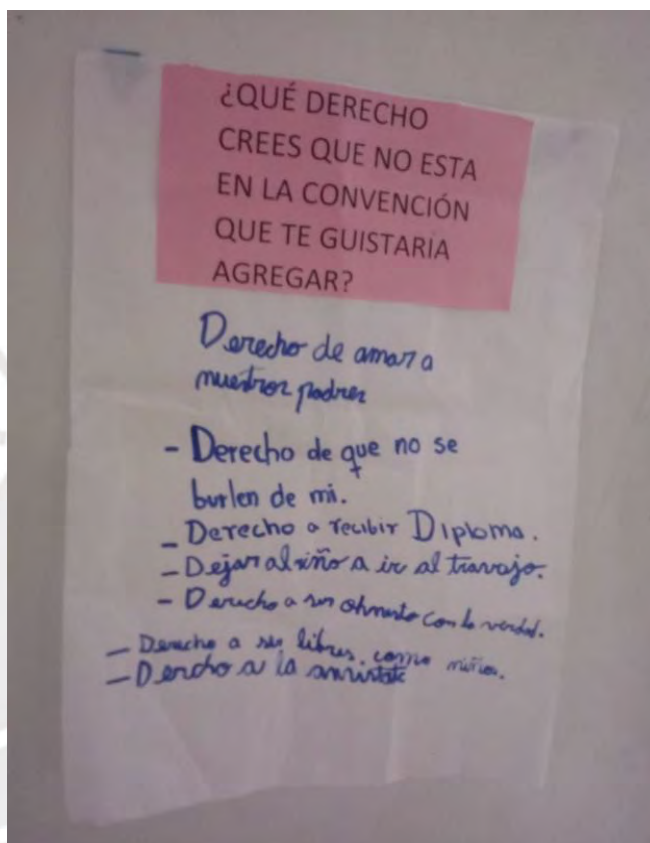 ¿QUÉ DERECHO
CREES QUE NO ESTA
EN LA CONVENCIÓN
QUE TE GUISTARÍA
AGREGAR?
Derecho de amar a
nuestros padres
- Derecho de que no se
burlen de mi.
- Derecho a recibir Diploma.
- Dejar al niño a ir al travajo.
- Derecho a ser ohnesto con la verdad.
- Derecho a ser libres. como niños.
- Dercho a la